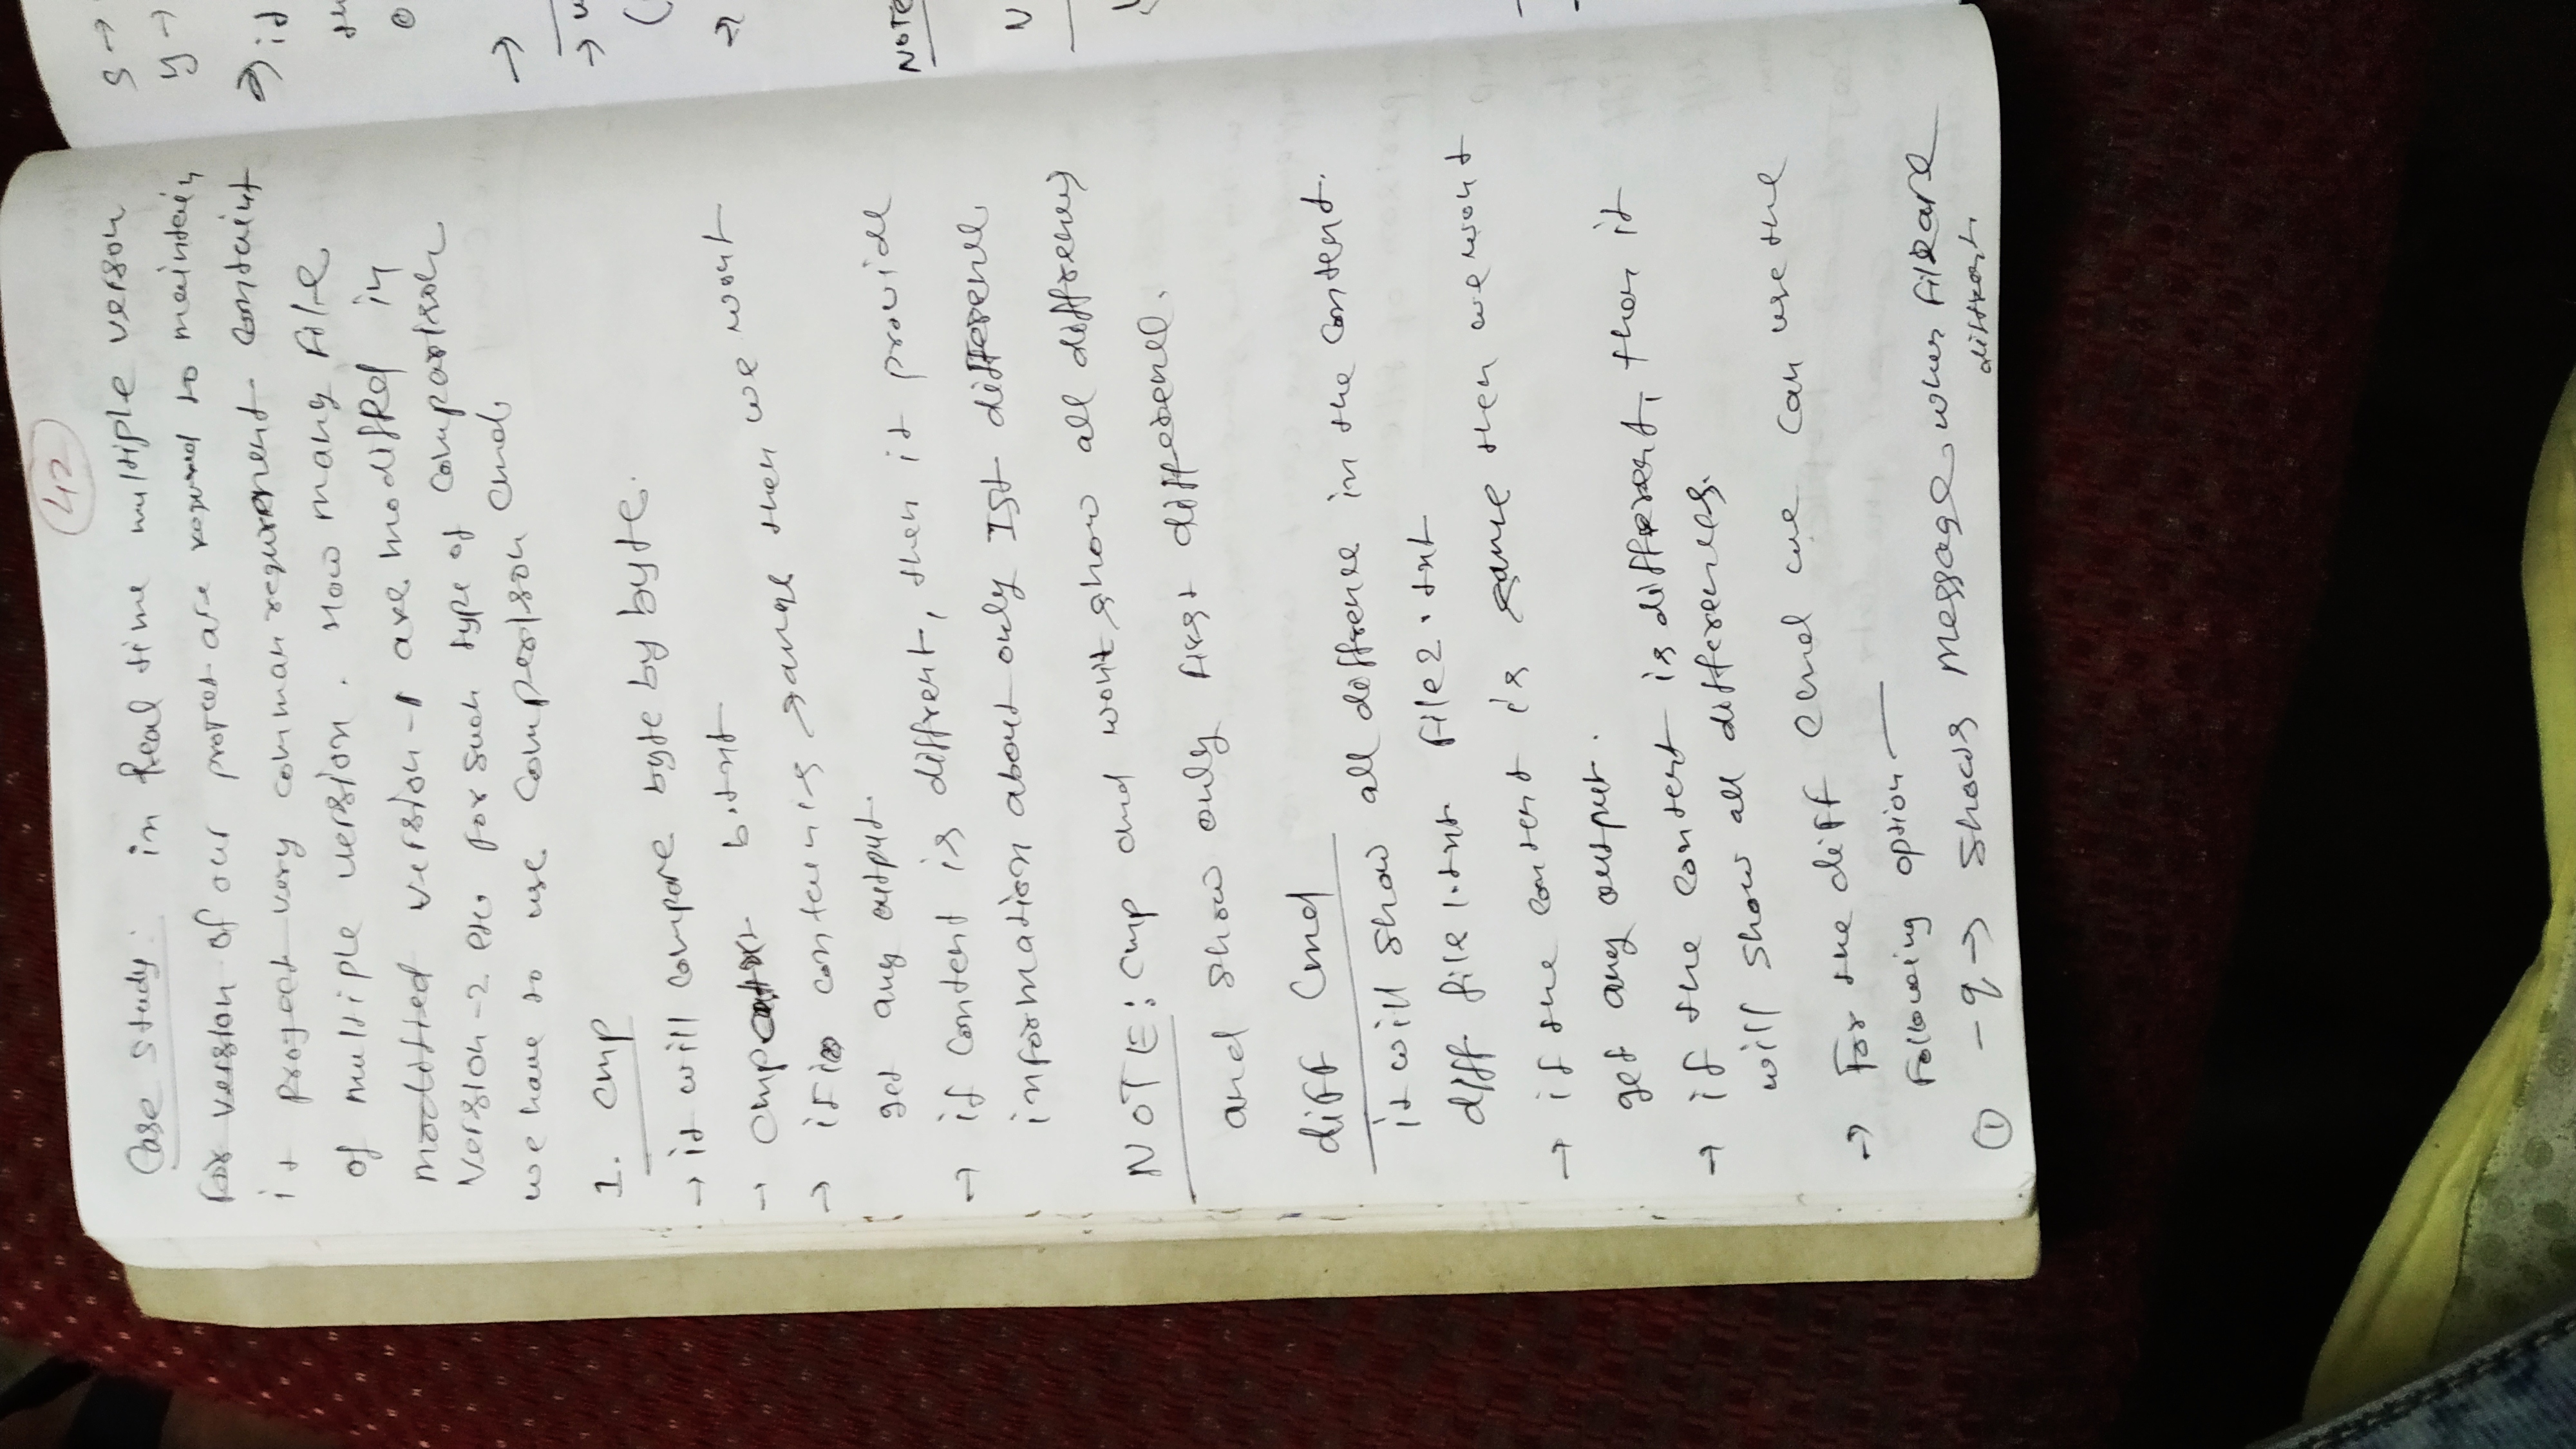 42
Case study: in Real time multiple verson
For version of our project are required to maintain
it project very common requirement containt
of multiple version. How many File
modified version-1 are modified in
version-2 etc for such type of comparison
we have to use Comperison cmd
1. cmp
→ it will compare byte by byte.
→ cmp b.txt
→ if content is same then we wont
get any output.
→ if content is diffrent, then it provide
information about only 1st difference
NOTE: cmp cmd won't show all differences
and show only first difference.
diff Cmd
it will show all diffrence in the content.
diff file1.txt File2.txt
→ if the content is same then we wont
get any output.
→ if the content is different, then it
will show all differences.
→ For the diff cmd we can use the
Following option —
① -q → Shows Message when File are
diffrent.
s →
y →
⇒ it
→
→
(
→
NOTE
N